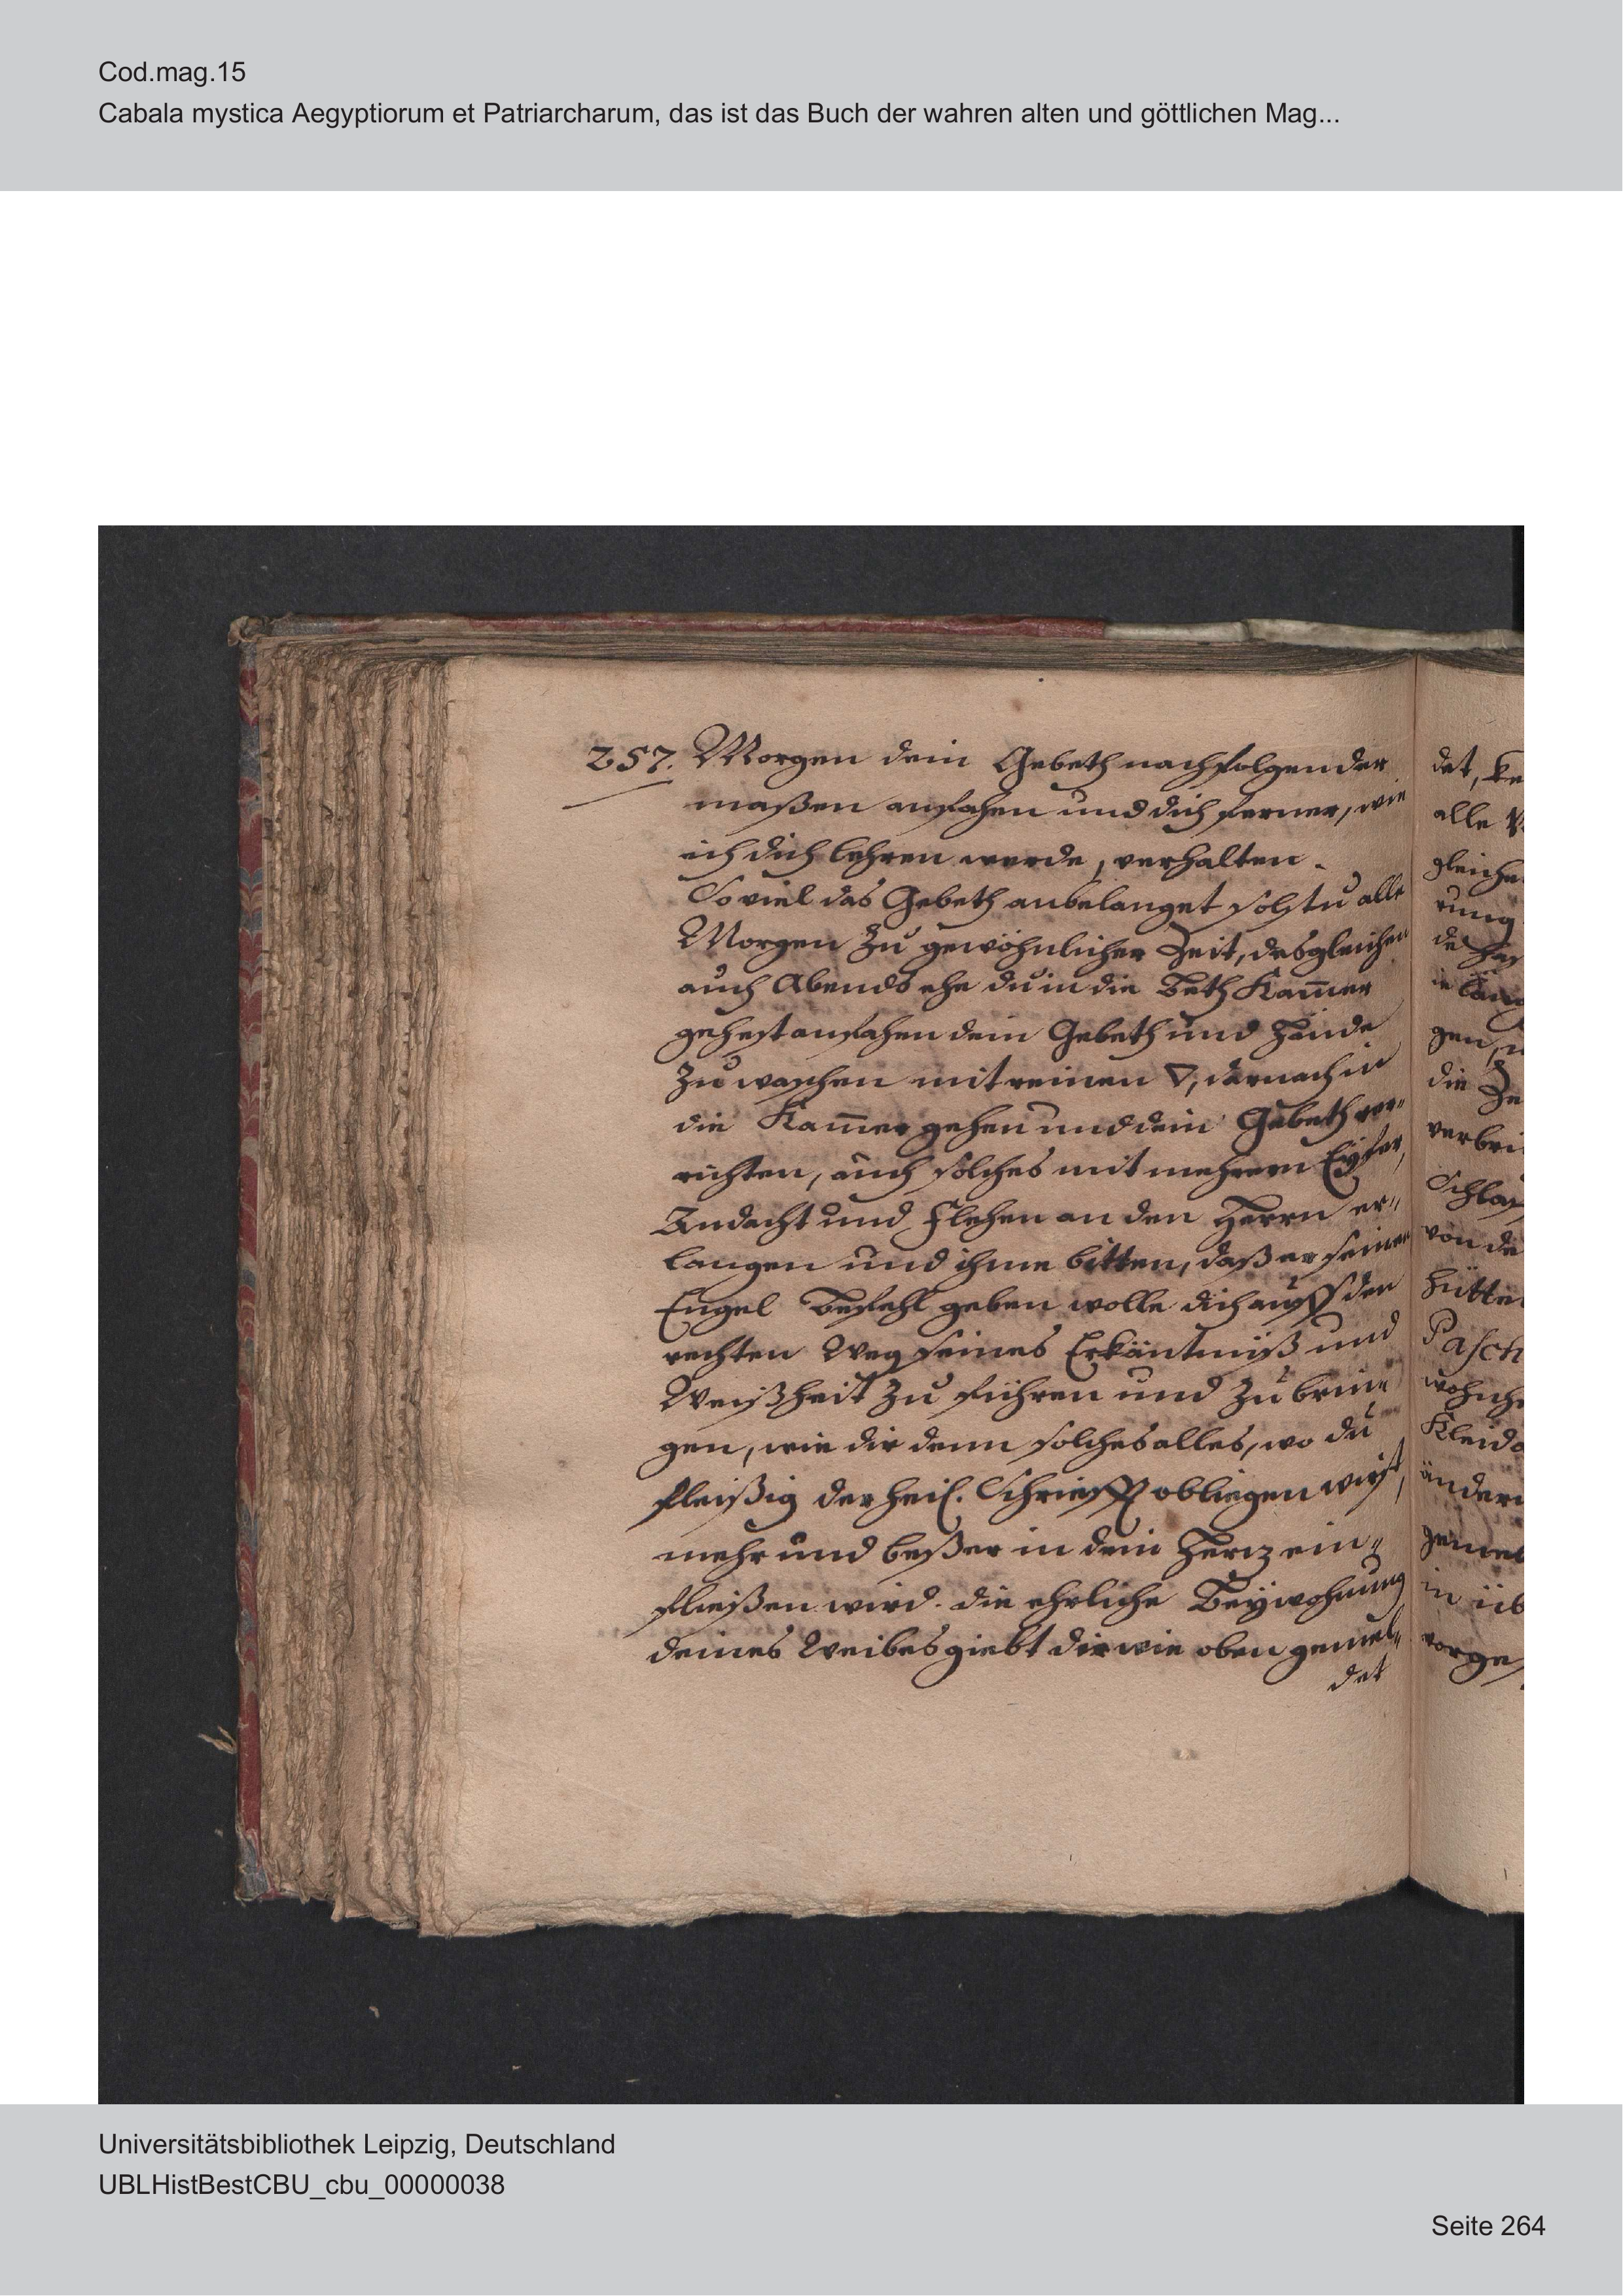 Cod.mag.15
Cabala mystica Aegyptiorum et Patriarcharum, das ist das Buch der wahren alten und göttlichen Mag...
257. Morgen dein Gebeth nachfolgender
maßen anfahen und dich ferner, wie
ich dich lehren werde, verhalten.
So viel das Gebeth anbelanget solstu alle
Morgen zu gewöhnlicher Zeit, desgleichen
auch Abends ehe du in die Beth Kam̄er
gehest anfahen dein Gebeth und Hände
zu waschen mit reinen ▽, darnach in
die Kam̄er gehen und dein Gebeth ver⸗
richten, auch solches mit mehrern Eyfer,
Andacht und Flehen an den Herrn er⸗
langen und ihme bitten, daß er seinen
Engel Befehl geben wolle dich auff den
rechten Weg seines Erkäntnüß und
Weißheit zu führen und zu brin⸗
gen, wie dir denn solches alles, wo du
fleißig der heil. Schriefft obliegen wirst,
mehr und beßer in dein Hertz ein⸗
fließen wird. die ehrliche Beywohnung
deines Weibes giebt dir wie oben gemel⸗
det
det, ke
alle
gleiche
rung
de
gen,
die
verbri
Schlaf
von de
Hütte
Pasch
wohnhe
Kleide
änder
gemel
in üb
vorge
Universitätsbibliothek Leipzig, Deutschland
UBLHistBestCBU_cbu_00000038
Seite 264